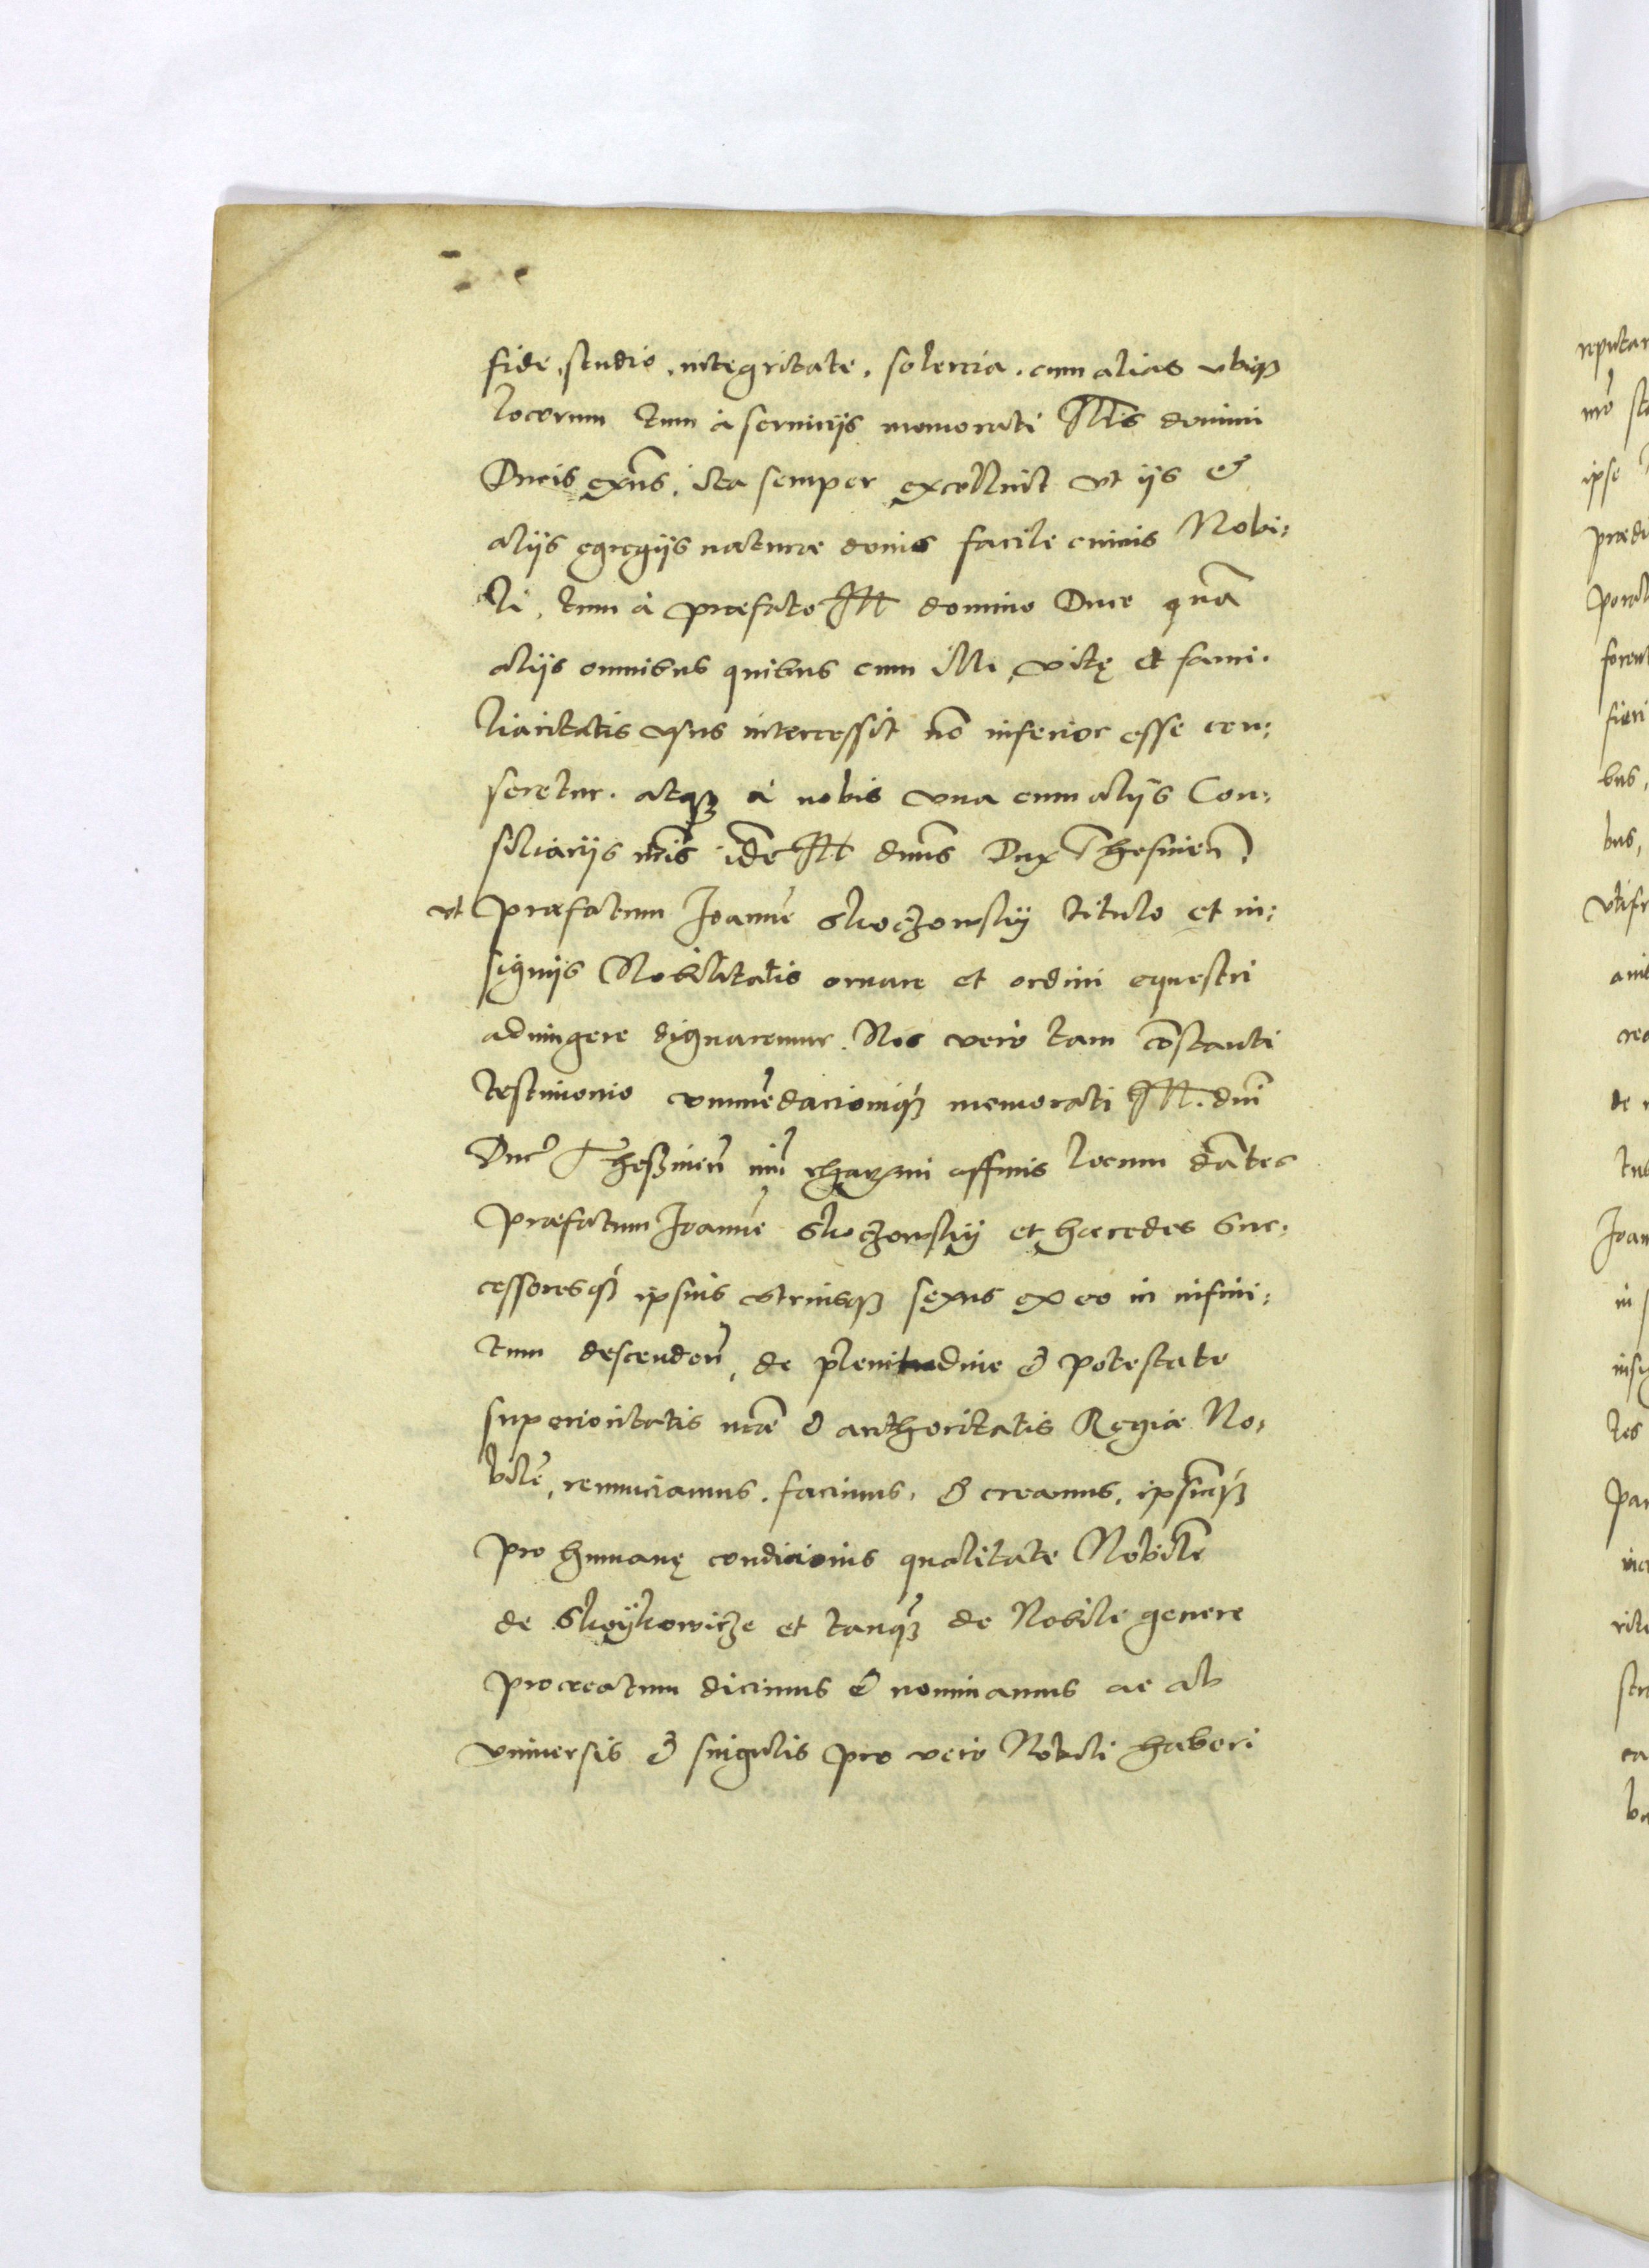 fide, studio, integritate, solercia, cum alias vbiqꝫ
locorum tum à seruicijs memorati Illis domini
Ducis exñs, ita semper excelluit vt ijs &
alijs egregijs naturæ donis facile cuiuis Nobi:
li, tum à præfato Ill domino Duce quā
alijs omnibus quibus cum illi vitę et fami.
liaritatis vsus intercessit nō inferior esse cen:
seretur. atqꝫ à nobis vna cum alijs Con:
siliarijs nr̃is idē Ill dñus Dux Thesinen̄
vt præfatum Joannē Skoczowsky titulo et in:
signijs Nobilitatis ornare et ordini equestri
adiungere dignaremur. Nos vero tam cōstanti
testimonio cōmmēdacioniqꝫ memorati Ill. dñi
Duc Thessinen̄ charmi affinis locum dātes
præfatum Joannē Skoczowsky et hæredes suc.
cessoresqꝫ ipsius vtriusqꝫ sexus ex eo in infini:
tum descenden̄, de plenitudine & potestate
superioritatis nr̃æ & authoritatis Regiæ No,
bilē, renunciamus, facimus, & creamus, ipsūqꝫ
pro humanę condicionis qualitate Nobilē
de Skoykowicze et tanqꝫ de Nobile genere
procreatum dicimus & nominamus ac ab
vniuersis & singulis pro vero Nobili haberi